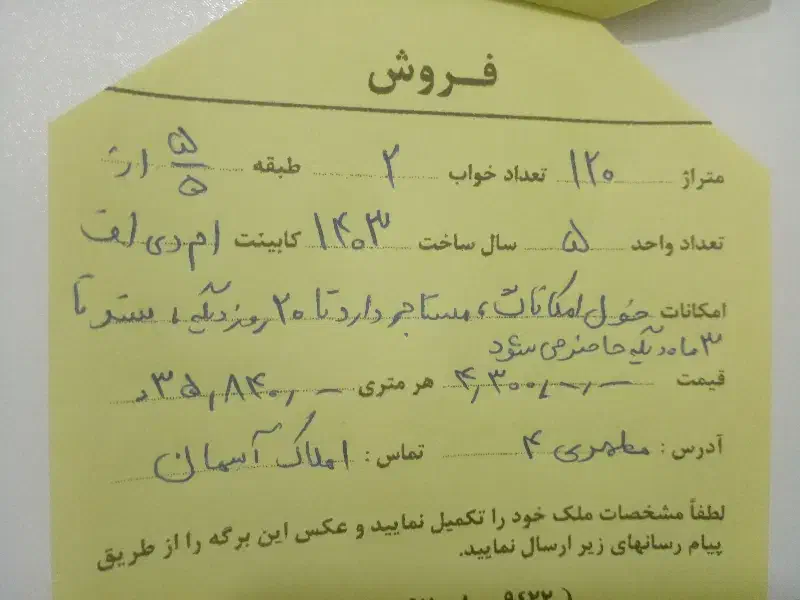 فروش
متراژ ۱۲۰ تعداد خواب ۲ طبقه ۵/۵ از
تعداد واحد ۵ سال ساخت ۱۴۰۳ کابینت ام دی اف
امکانات فول امکانات، مستاجر دارد تا ۲۰ روز دیگه، سند تا
۳ ماه دیگه حاضر می شود
قیمت ۴,۳۰۰,۰۰۰,۰۰۰ هر متری ۳۵,۸۴۰,۰۰۰
آدرس: مطهری ۴ تماس: املاک آسمان
لطفاً مشخصات ملک خود را تکمیل نمایید و عکس این برگه را از طریق
پیام رسانهای زیر ارسال نمایید.